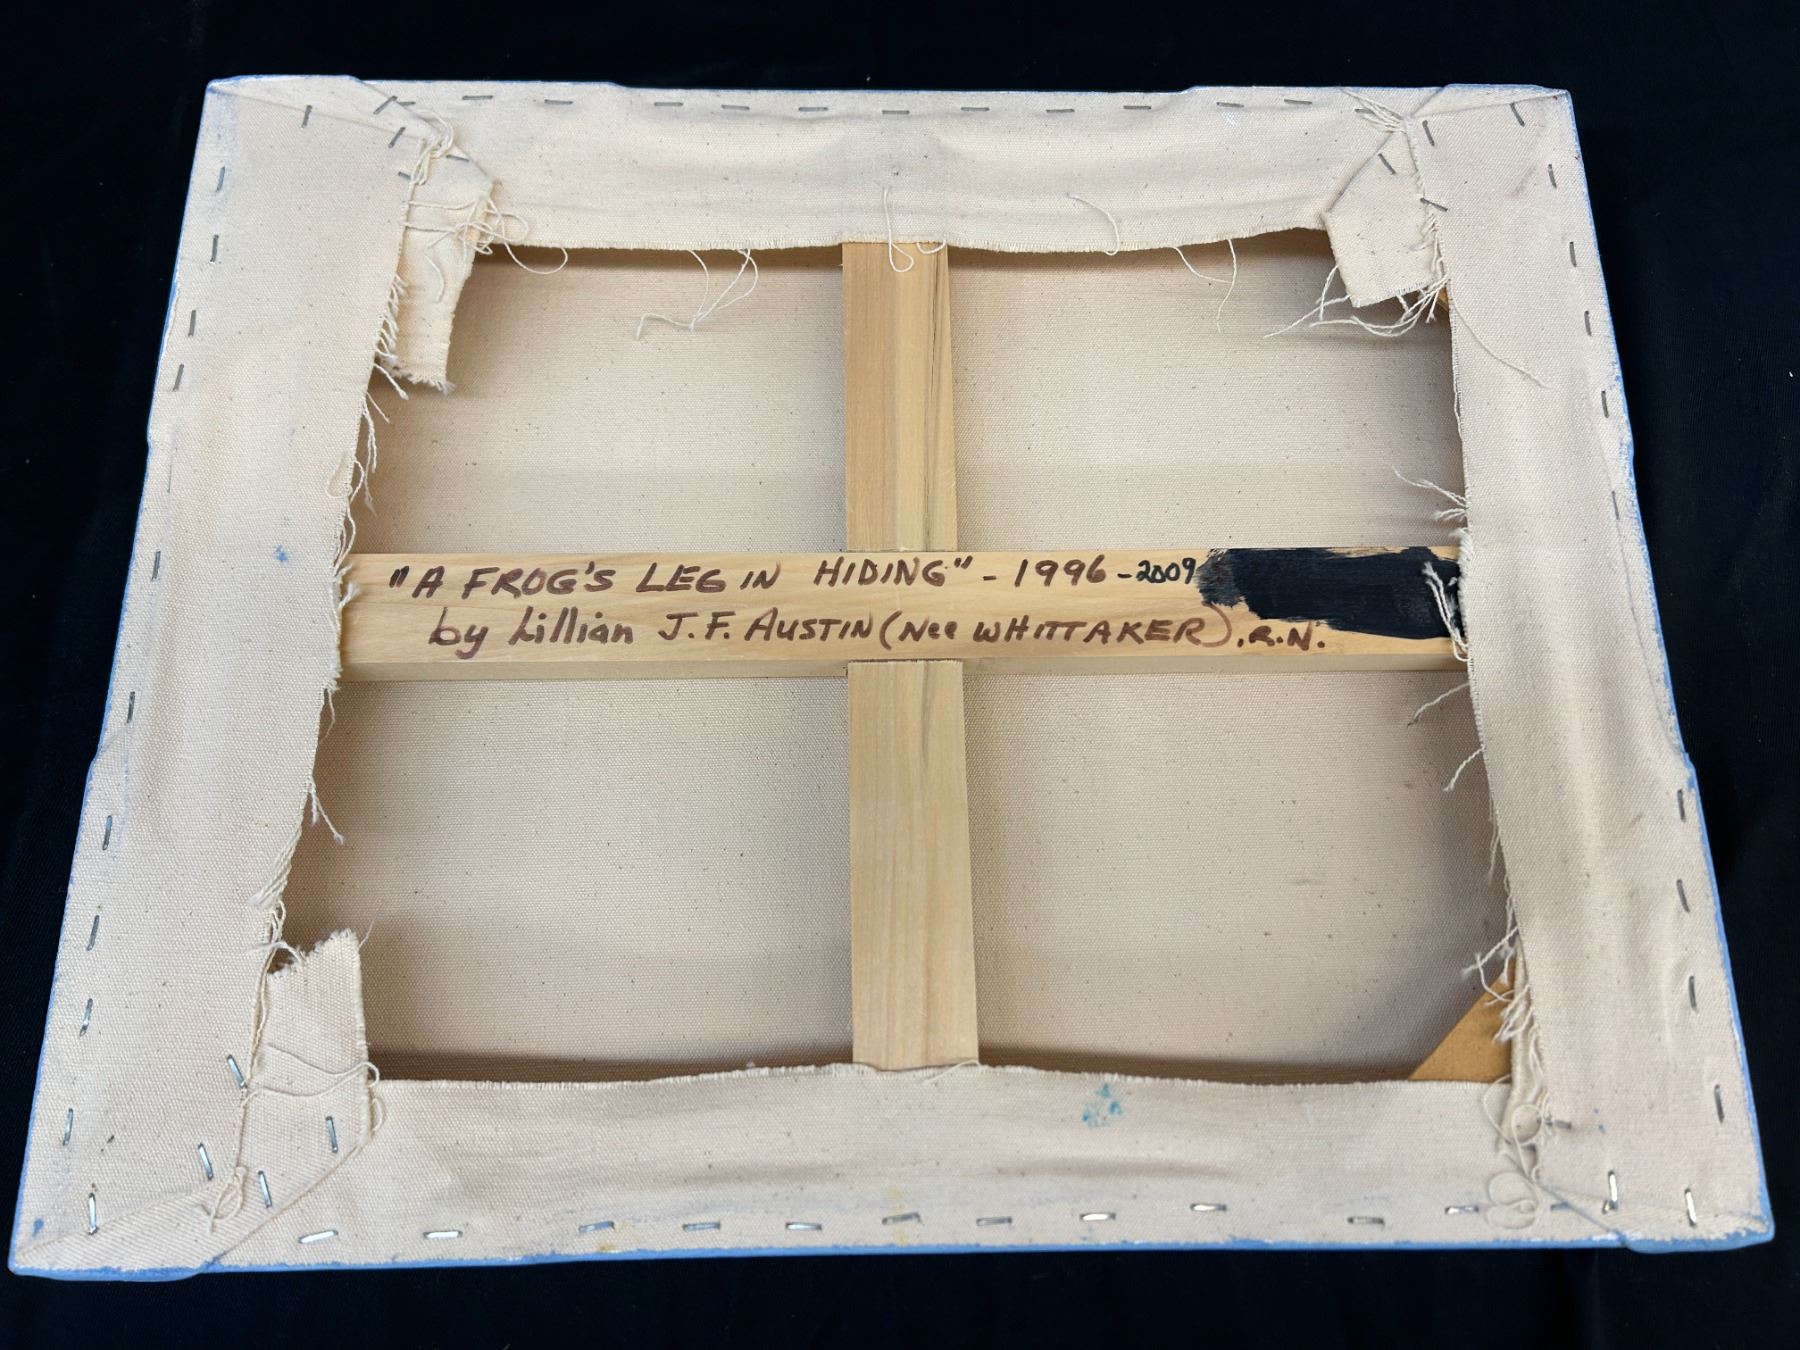 "A FROG'S LEG IN HIDING" - 1996 - 2009
by Lillian J.F. AUSTIN (Nee WHITTAKER), R.N.